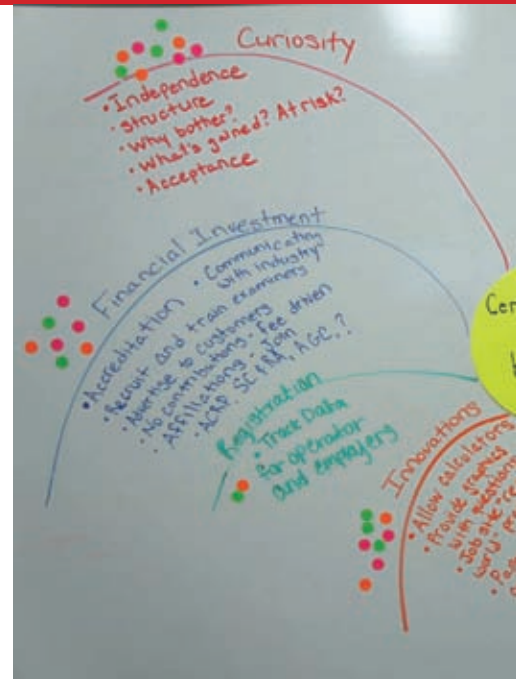 Curiosity
• Independence
• structure
• Why bother?
• What's gained? At risk?
• Acceptance
Financial Investment
• Accreditation
• Communicating
with industry
• Recruit and train examiners
• Advertise to customers
• No contributions - Fee driven
• Affiliations - Join
• ACRP, SC&RA, AGC, ?
Registration
• Track Data
for operator
and employers
Cer
Innovations
• Allow calculators
• Provide graphics
with questions
• Job site "re
world"